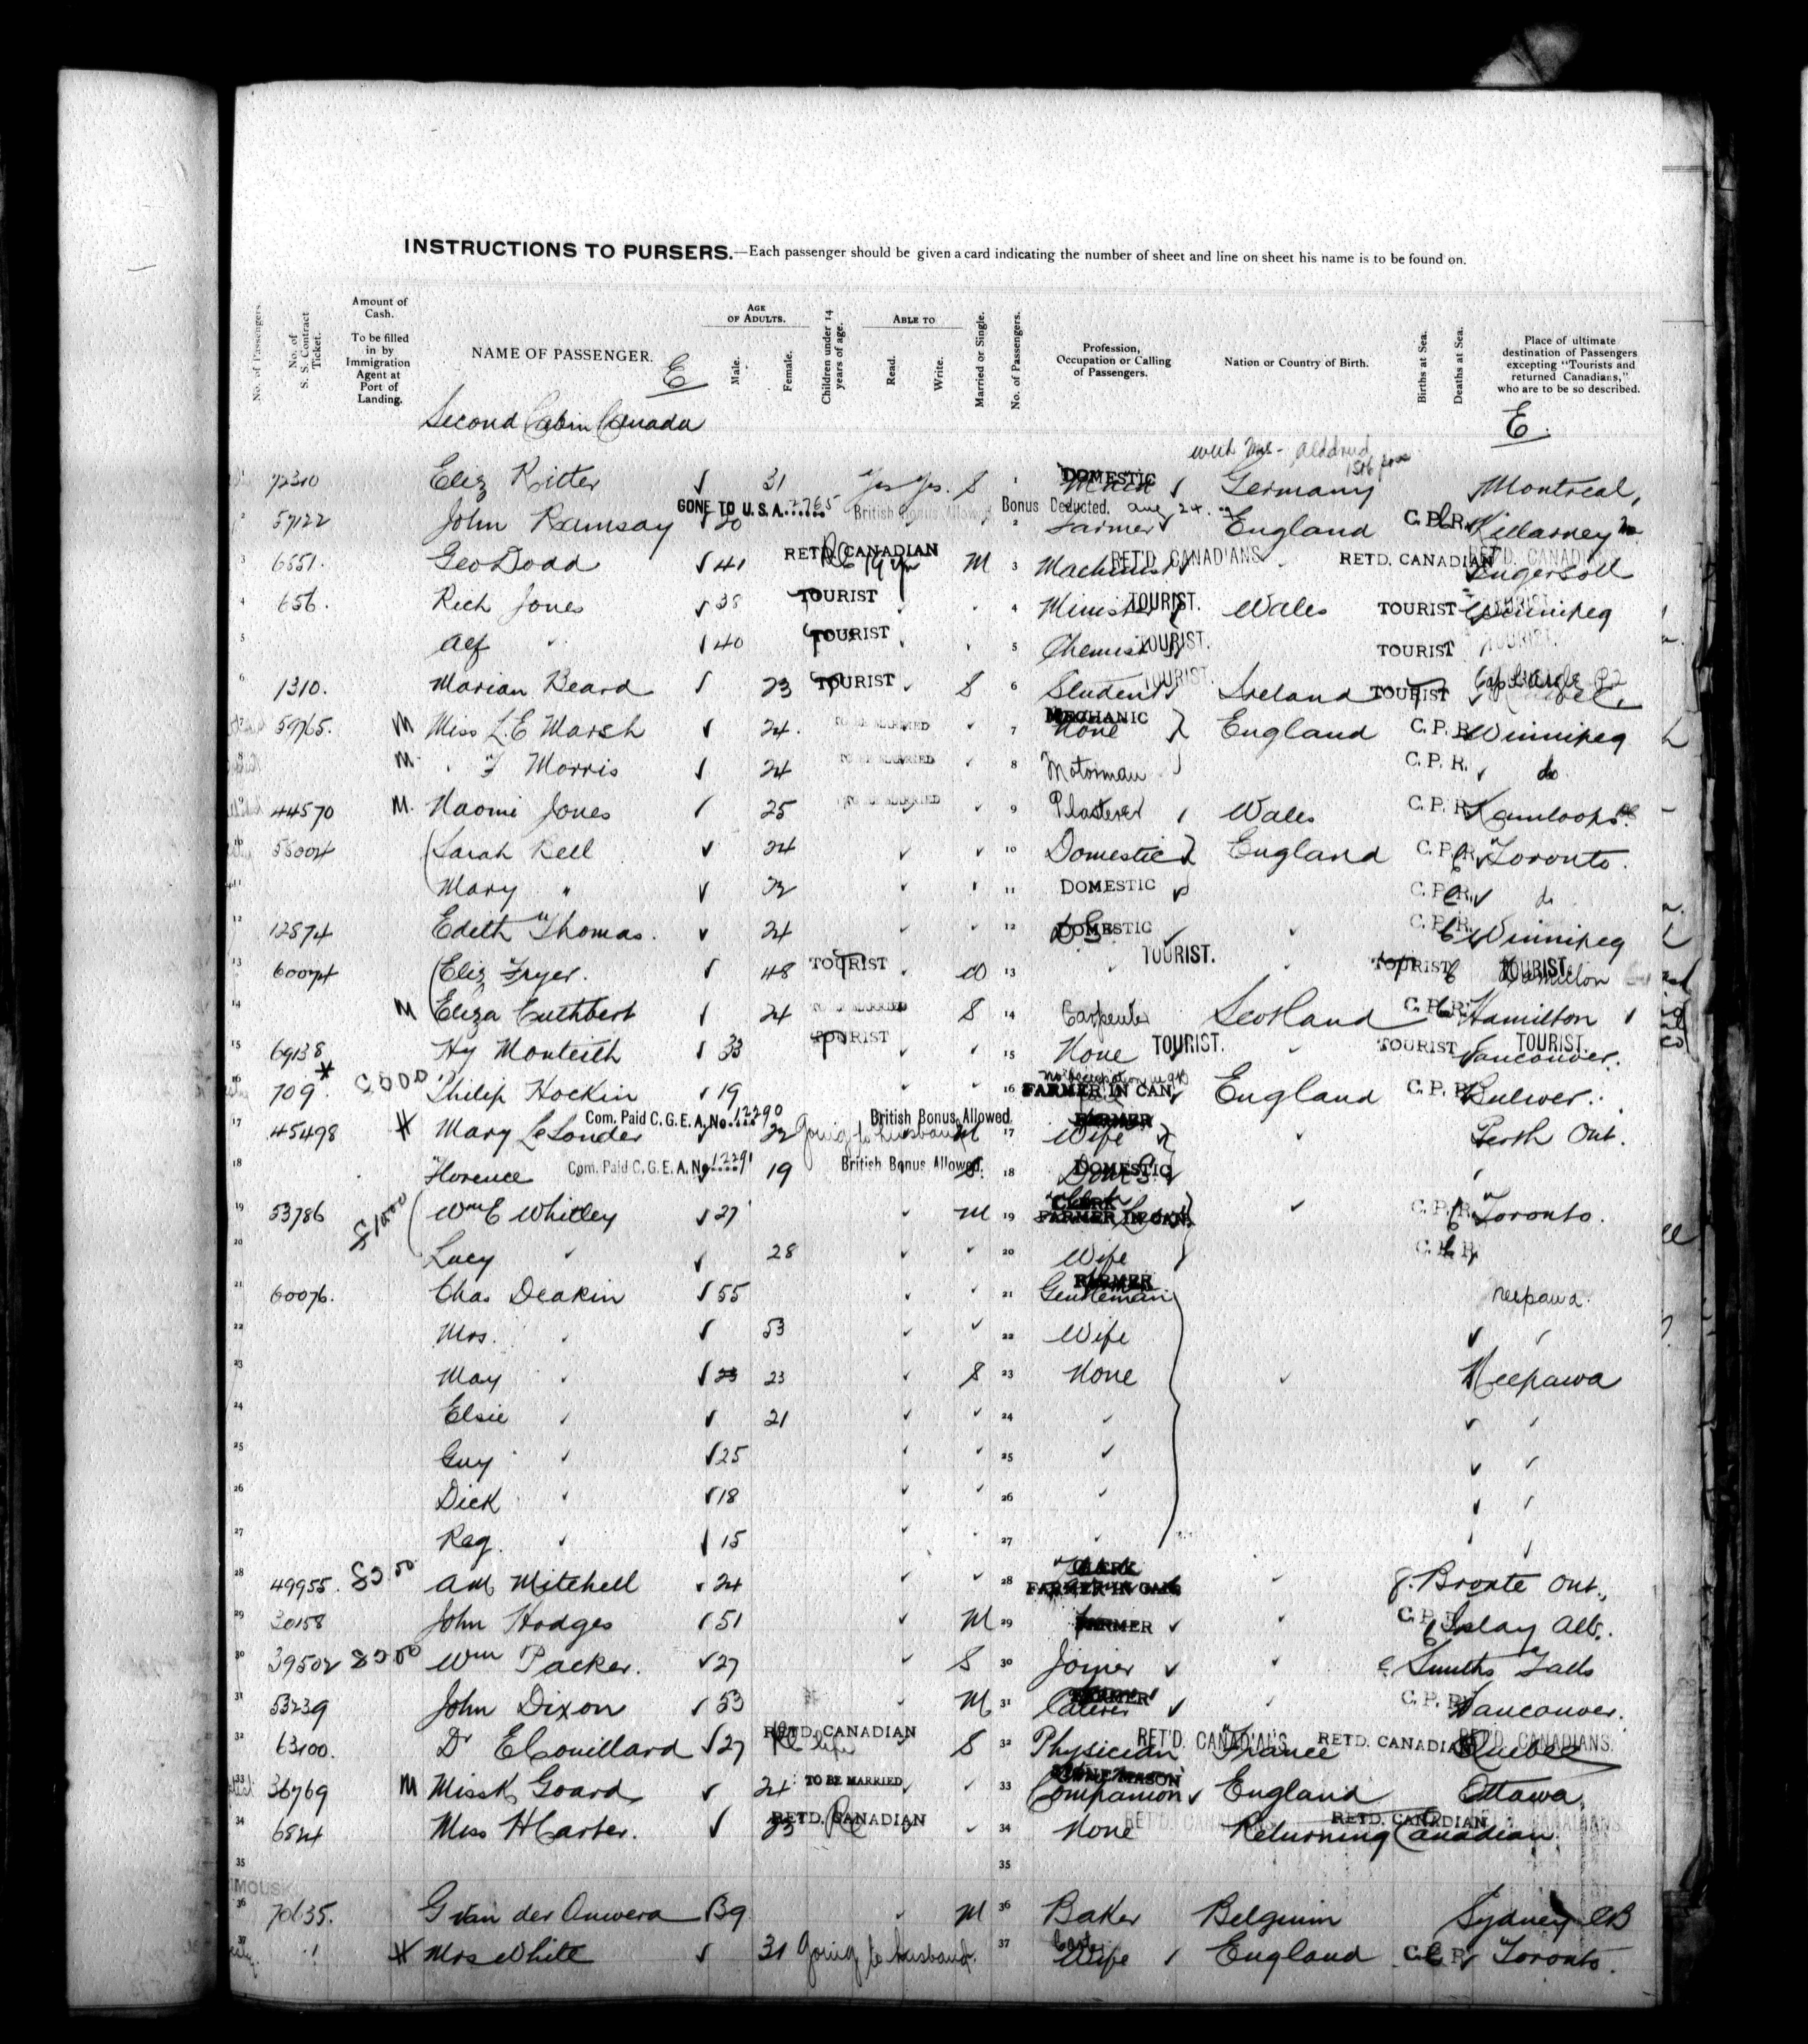 INSTRUCTIONS TO PURSERS.—Each passenger should be given a card indicating the number of sheet and line on sheet his name is to be found on.
No. of Passengers. No. of S. S. Contract Ticket. Amount of Cash. To be filled in by Immigration Agent at Port of Landing. NAME OF PASSENGER. E AGE OF ADULTS. Male. Female. Children under 14 years of age. ABLE TO Read. Write. Married or Single. No. of Passengers. Profession, Occupation or Calling of Passengers. Nation or Country of Birth. Births at Sea. Deaths at Sea. Place of ultimate destination of Passengers excepting "Tourists and returned Canadians," who are to be so described.
Second Cabin Canada E.
72310 Eliz Ritter ✓ 31 Yes Yes. S 1 DOMESTIC ✓ Germany Montreal,
GONE TO U.S.A. 2765 British Bonus Allowed Bonus Deducted. Aug 24.
2 57122 John Ramsay ✓ 20 2 Farmer ✓ England C.P.R. Killarney
3 6551. Geo Dodd ✓ 41 RETD. CANADIAN M 3 Machinist RET'D. CANADIANS RETD. CANADIAN Ingersoll
4 656. Rich Jones ✓ 38 TOURIST 4 Minister TOURIST. Wales TOURIST Winnipeg
5 Alf " ✓ 40 TOURIST 5 Chemist TOURIST. TOURIST
6 1310. Marian Beard ✓ 23 TOURIST ✓ S 6 Student TOURIST. Ireland TOURIST
7 59765. M Miss L.E Marsh ✓ 24. TO BE MARRIED ✓ 7 MECHANIC None England C.P.R. Winnipeg
8 M " F Morris ✓ 24 TO BE MARRIED ✓ 8 Motorman C.P.R. ✓ do
9 44570 M. Naomi Jones ✓ 25 TO BE MARRIED ✓ 9 Plasterer Wales C.P.R. Kamloops
10 58004 Sarah Bell ✓ 24 ✓ ✓ 10 Domestic England C.P.R. Toronto.
11 Mary " ✓ 22 ✓ 11 DOMESTIC C.P.R. ✓ do
12 12874 Edith Thomas. ✓ 24 ✓ ✓ 12 DOMESTIC ✓ C.P.R. Winnipeg
13 60074 Eliz Fryer. ✓ 48 TOURIST ✓ W 13 TOURIST. TOURIST TOURIST. Hamilton
14 M Eliza Cuthbert ✓ 24 TO BE MARRIED S 14 Carpenter Scotland C.P.R. Hamilton ✓
15 69138 Hy Monteith ✓ 33 TOURIST ✓ ✓ 15 None TOURIST. ✓ TOURIST TOURIST. Vancouver.
16 709. Philip Hockin ✓ 19 ✓ ✓ 16 FARMER IN CAN England C.P.R. Bulwer.
Com. Paid C.G.E.A. No. 12290 British Bonus Allowed. FARMER
17 45498 Mary LeSonder ✓ 22 Going to husband M 17 Wife Perth Ont.
18 Florence Com. Paid C.G.E.A. No. 12291 19 British Bonus Allowed. S. 18 DOMESTIC
19 53786 $1000 Wm E Whitley ✓ 27 ✓ M 19 CLERK FARMER IN CAN. ✓ C.P.R. Toronto.
20 Lucy " ✓ 28 ✓ ✓ 20 Wife C.P.R.
21 60076. Chas Deakin ✓ 55 ✓ ✓ 21 FARMER Gentleman Neepawa.
22 Mrs. " ✓ 53 ✓ ✓ 22 Wife ✓ ✓
23 May " ✓ 23 23 ✓ S 23 None ✓ Neepawa
24 Elsie " ✓ 21 ✓ ✓ 24 ✓ ✓ ✓
25 Guy " ✓ 25 ✓ ✓ 25 ✓ ✓ ✓
26 Dick " ✓ 18 ✓ ✓ 26 ✓ ✓ ✓
27 Reg. " ✓ 15 ✓ 27
28 49955. A M Mitchell ✓ 24 ✓ ✓ 28 CLERK FARMER IN CAN. Bronte Ont.
29 30158 John Hodges ✓ 51 ✓ M 29 FARMER ✓ C.P.R. Islay Alb.
30 39502 Wm Packer. ✓ 27 ✓ S 30 Joiner ✓ ✓ Smiths Falls
31 53239 John Dixon ✓ 53 ✓ M 31 Caterer ✓ C.P.R. Vancouver.
32 63100. Dr E Couillard ✓ 27 RETD. CANADIAN life ✓ S 32 Physician RET'D. CANADIANS France RETD. CANADIAN RET'D. CANADIANS. Quebec
33 36769 M Miss K Goard ✓ 24 TO BE MARRIED ✓ 33 STONE MASON Companion ✓ England Ottawa
34 6824 Miss H Carter. ✓ 23 RETD. CANADIAN ✓ 34 None RET'D. CANADIANS RETD. CANADIAN Returning Canadian
35 35
36 70635. G van der Auwera 39 ✓ M 36 Baker Belgium Sydney CB
37 Mrs White ✓ 31 Going to husband. 37 Wife England C.P.R. Toronto.